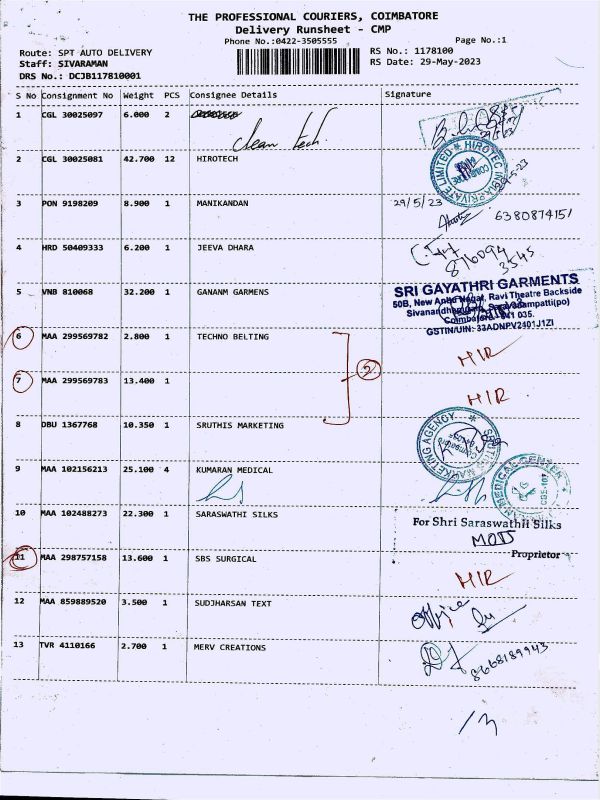 THE PROFESSIONAL COURIERS, COIMBATORE
Delivery Runsheet - CMP
Phone No.:0422-3505555
Page No.:1
Route: SPT AUTO DELIVERY
RS No.: 1178100
Staff: SIVARAMAN
RS Date: 29-May-2023
DRS No.: DCJB117810001
S No Consignment No Weight PCS Consignee Details Signature
1 CGL 30025097 6.000 2
clean tech.
2 CGL 30025081 42.700 12 HIROTECH
3 PON 9198209 8.900 1 MANIKANDAN 29/5/23
6380874151
4 HRD 50409333 6.200 1 JEEVA DHARA
876094
3545
5 VNB 810068 32.200 1 GANANM GARMENS
SRI GAYATHRI GARMENTS
50B, New Anna Nagar, Ravi Theatre Backside
Coimbatore - 641 035.
GSTIN/UIN: 33ADNPV2401J1ZI
6 MAA 299569782 2.800 1 TECHNO BELTING
HIR
7 MAA 299569783 13.400 1
HIR
8 DBU 1367768 10.350 1 SRUTHIS MARKETING
9 MAA 102156213 25.100 4 KUMARAN MEDICAL
10 MAA 102488273 22.300 1 SARASWATHI SILKS
For Shri Saraswathii Silks
Proprietor
11 MAA 298757158 13.600 1 SBS SURGICAL
HIR
12 MAA 859889520 3.500 1 SUDJHARSAN TEXT
office
13 TVR 4110166 2.700 1 MERV CREATIONS
8668189943
/13